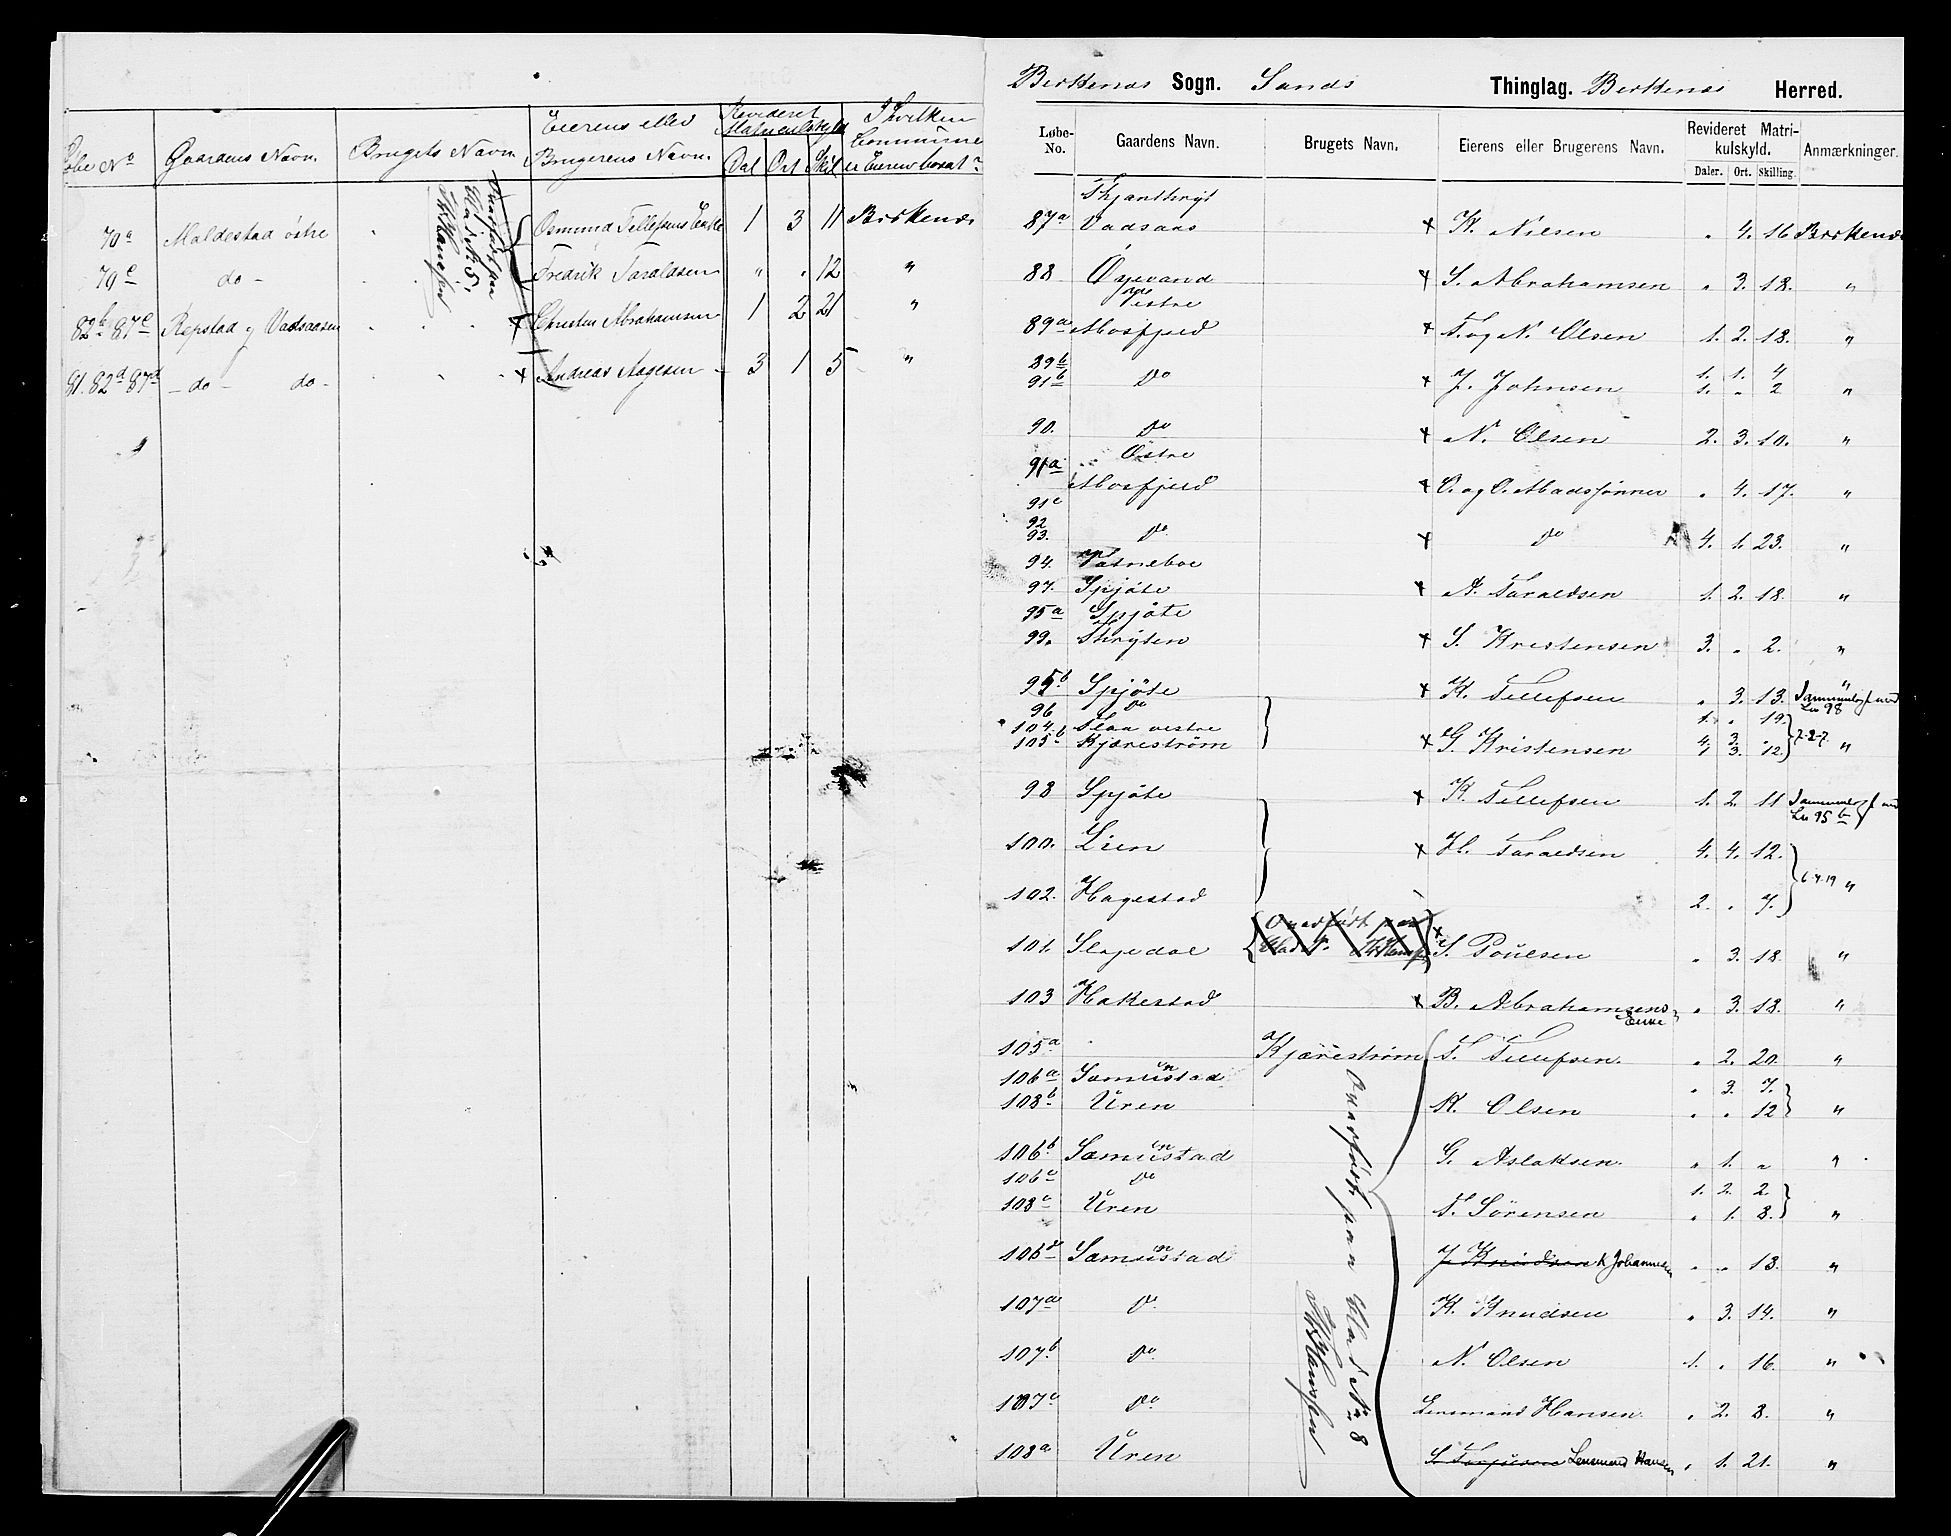 Løbe No Gaardens Navn. Brugets Navn Eierens eller Brugerens Navn. Revideret Matriculskyld Dal Ort Skil I hvilken Commune er Eieren bosat?
70a Maldestad östre Osmund Tellefsens Enke 1 3 11 Birkenæs
70c do - Fredrik Taraldsen " . 12 "
82b 87c Repstad og Vadsaasen x Christen Abrahamsen 1 2 21 "
81. 82d 87d - do - do - x Andreas Aagesen - 3 1 5 "
Overført paa Blad No 5.
Birkenæs Sogn. Sands Thinglag. Birkenæs Herred.
Løbe-No. Gaardens Navn. Brugets Navn. Eierens eller Brugerens Navn. Revideret Matrikulskyld. Daler. Ort. Skilling. Anmærkninger.
87a Vadsaas x K. Nilsen " 4. 16 Birkenæs
88 Øyevand x S. Abrahamsen " 3. 18. "
Vestre
89a Mosfjeld x T. og N. Olsen 1. 2. 18. "
89b 1. 1. 4
91b Do x J. Johnsen 1. " 2 "
90. Do x N. Olsen 2. 3. 10. "
Östre
91a Mosfjeld x O. og O. Madssönner " 4. 17. "
91c
92
93. Do x Do 4. 1. 23. "
94. Vatneboe
97. Spjöte x A. Taraldsen 1. 2. 18. "
95a Spjöte
99. Thryten x S. Kristensen 3. " 2. "
95b Spjöte x K. Tellefsen " 3. 13. "
96 Do 1. " 19.
104. Flaa vestre 4. 3. "
105b Kjæreström x G. Kristensen " 3. 12. 7-2-7. "
98 Spjöte x K. Tellefsen 1. 2. 11
100. Lien x H. Taraldsen 4. 4. 12.
102. Hagestad 2. " 7. 6-4-19 "
101. x S. Poulsen " 3. 18. "
103 Hakestad x B. Abrahamsens Enke " 3. 18. "
105a Kjæreström T. Tellefsen. " 2. 20. "
106a Samunstad " 3. 7.
108b Uren K. Olsen " " 12 "
106b Samunstad G. Aslaksen. " 1. " "
106c Do 1. 2. 2.
108c Uren T. Sörensen " 1. 8. "
106d Samunstad K Johannesen " " 13. "
107a Do. K. Knudsen " 3. 14. "
107b Do. N. Olsen 1. " 16. "
107c Do. Lensmand Hansen. " 2. 8. "
108a Uren Lensmand Hansen " 1. 21. "
Overført paa Blad No 8